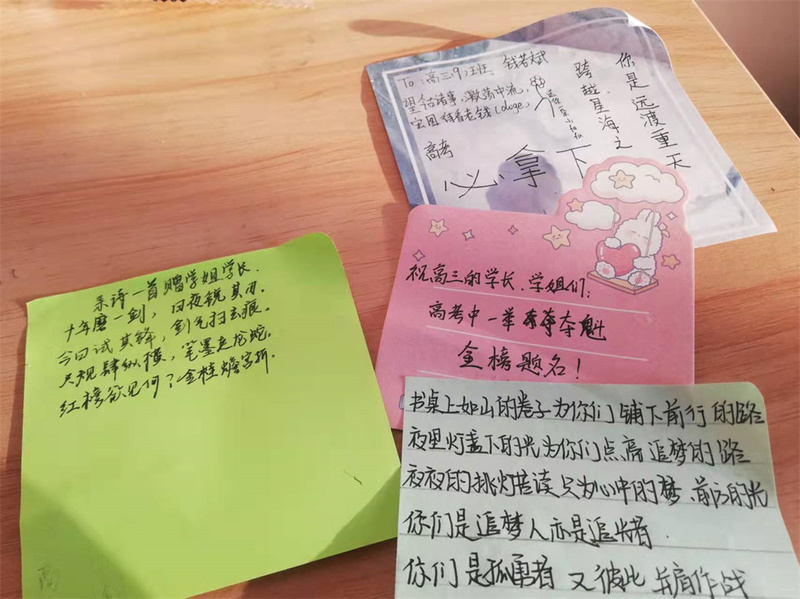 To:高三9班 钱若斌
高考
必拿下
你是远渡重天
跨越星海之
祝高三的学长、学姐们:
高考中一举夺魁
金榜题名!
亲诗一首赠学姐学长.
十年磨一剑,日夜锐其刃.
今日试其锋,剑气扫玄痕.
尺规肆纵横,笔墨走龙蛇.
红榜终见何?金桂蟾宫折.
书桌上如山的卷子为你们铺下前行的路
夜里灯盏下的光为你们点亮追梦的路
夜夜的挑灯苦读只为心中的梦、前方的光
你们是追梦人亦是追光者.
你们是孤勇者 又彼此并肩作战